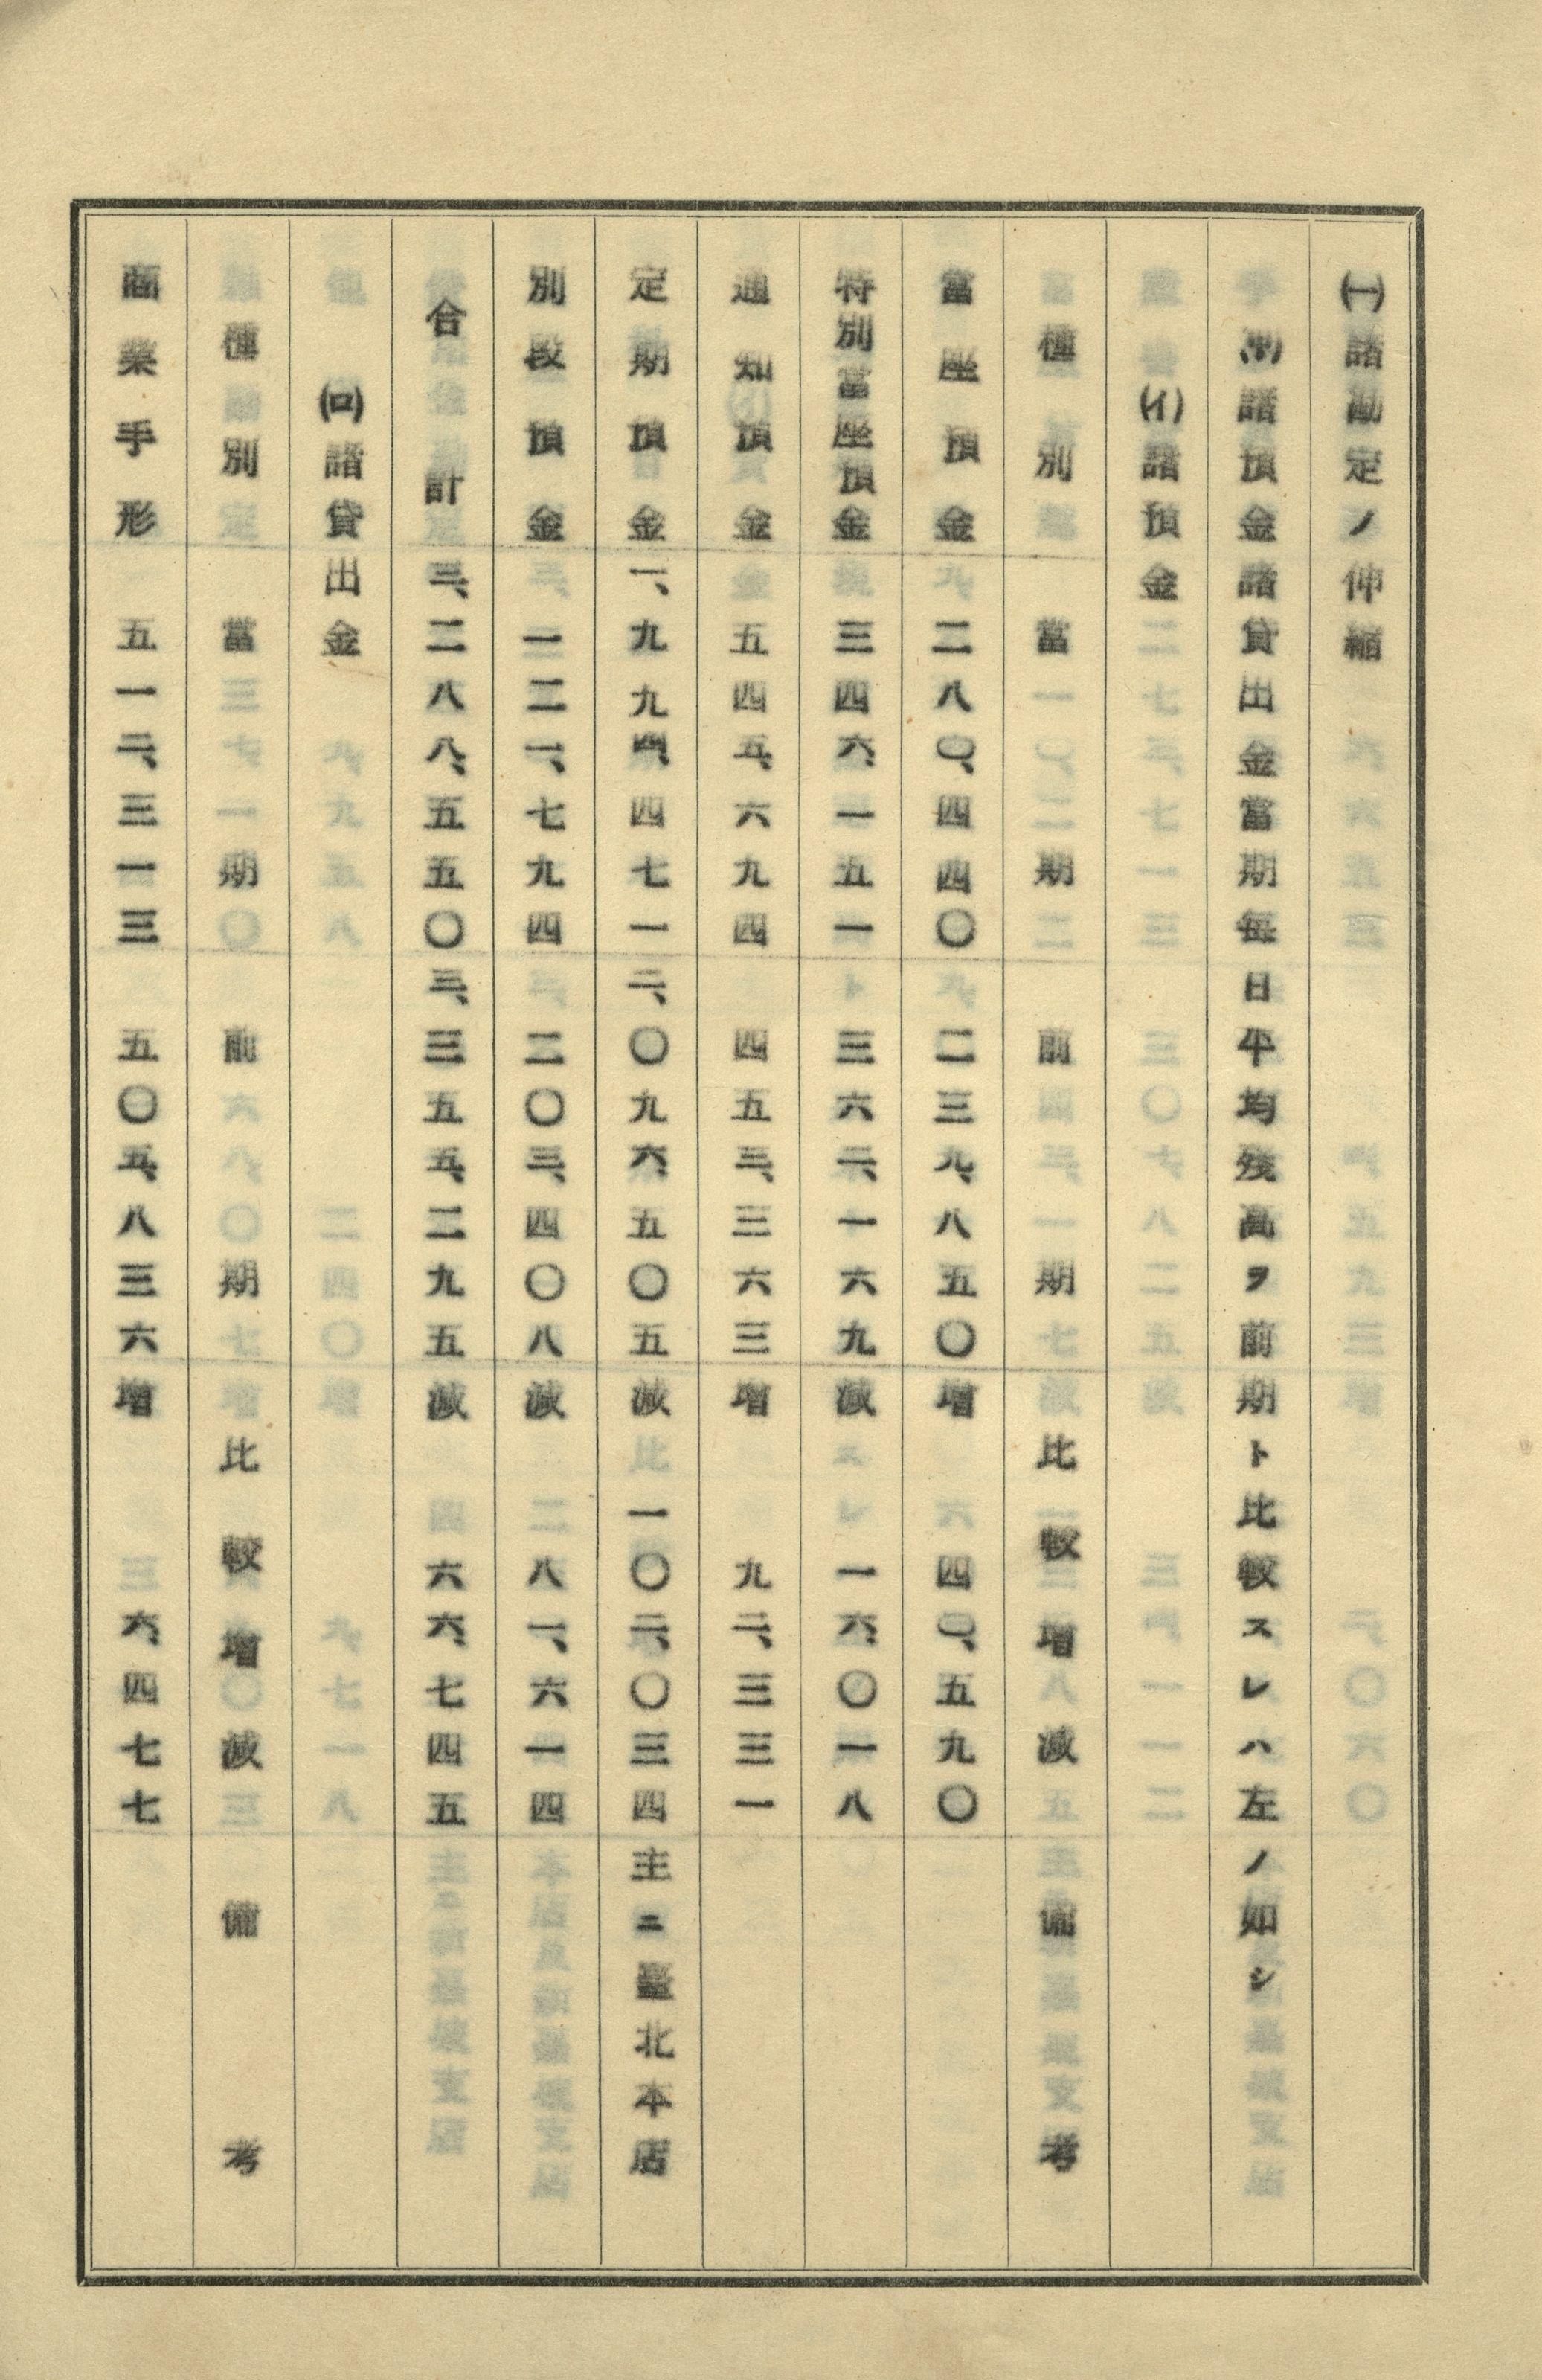 (一)諸勘定ノ伸縮
諸預金諸貸出金當期毎日平均残高ヲ前期ト比較スレハ左ノ如シ
(イ)諸預金
種別 當期 前期 比較増減 備考
當座預金 二八〇、四四〇 二三九、八五〇 増 四〇、五九〇
特別當座預金 三四六、一五一 三六二、一六九 減 一六、〇一八
通知預金 五四五、六九四 四五三、三六三 増 九二、三三一
定期預金 一、九九四、四七一 二、〇九六、五〇五 減 一〇二、〇三四 主ニ臺北本店
別段預金 一二一、七九四 二〇三、四〇八 減 八一、六一四
合計 三、二八八、五五〇 三、三五五、二九五 減 六六、七四五
(ロ)諸貸出金
種別 當期 前期 比較増減 備考
商業手形 五一二、三一三 五〇五、八三六 増 六、四七七